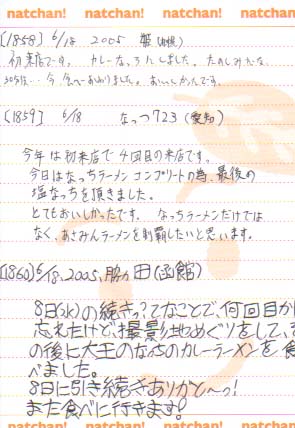 natchan! natchan! natchan! natchan!
[1858] 6/18 2005
初来店です。 カレーな にしました。 たのしみだな。
今、食べおわりました。 おいしかったです。
[1859] 6/18 なっつ723 (愛知)
今年は初来店で4回目の来店です。
今日はなっちラーメンコンプリートの為、最後の
塩なっちを頂きました。
とてもおいしかったです。 なっちラーメンだけでは
なく、あさみんラーメンを制覇したいと思います。
(1860) 6/18、2005、脇田(函館)
8日(水)の続きってなことで、何回目か
忘れたけど、撮影地めぐりをして、
の後に大王のなっちのカレーラーメンを食
べました。
8日に引き続きありがと〜っ!
また食べに行きます!
natchan! natchan! natchan! natchan!